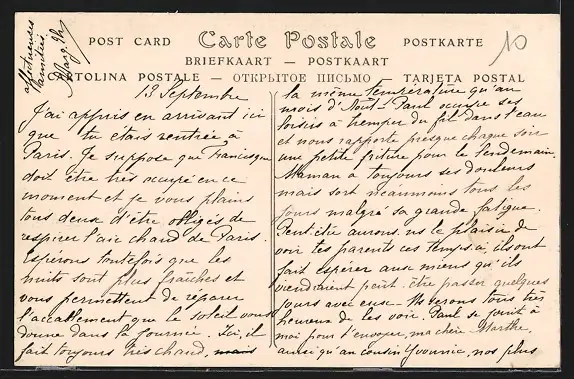 POST CARD
Carte Postale
POSTKARTE
BRIEFKAART — POSTKAART
CARTOLINA POSTALE — ОТКРЫТОЕ ПИСЬМО — TARJETA POSTAL
10
13 Septembre
J'ai appris en arrivant ici
que tu étais rentrée à
Paris. Je suppose que
doit être très occupé en ce
moment et je vous plains
tous deux d'être obligés de
respirer l'air chaud de Paris.
Espérons toutefois que les
nuits sont plus fraîches et
vous permettent de réparer
l'accablement que le soleil vous
donne dans la journée. Ici, il
fait toujours très chaud,
la même température qu'au
mois d'Août. Paul occupe ses
loisirs à tremper du fil dans l'eau
et nous rapporte presque chaque soir
une petite friture pour le lendemain.
Maman a toujours ses douleurs
mais sort néanmoins tous les
jours malgré sa grande fatigue.
Peut-être aurons-ns le plaisir de
voir tes parents ces temps-ci, ils ont
fait espérer aux miens qu'ils
viendraient peut-être passer quelques
jours avec eux. Ns serons tous très
heureux de les voir. Paul se joint à
moi pour t'envoyer, ma chère Marthe,
ainsi qu'au cousin, nos plus
affectueuses